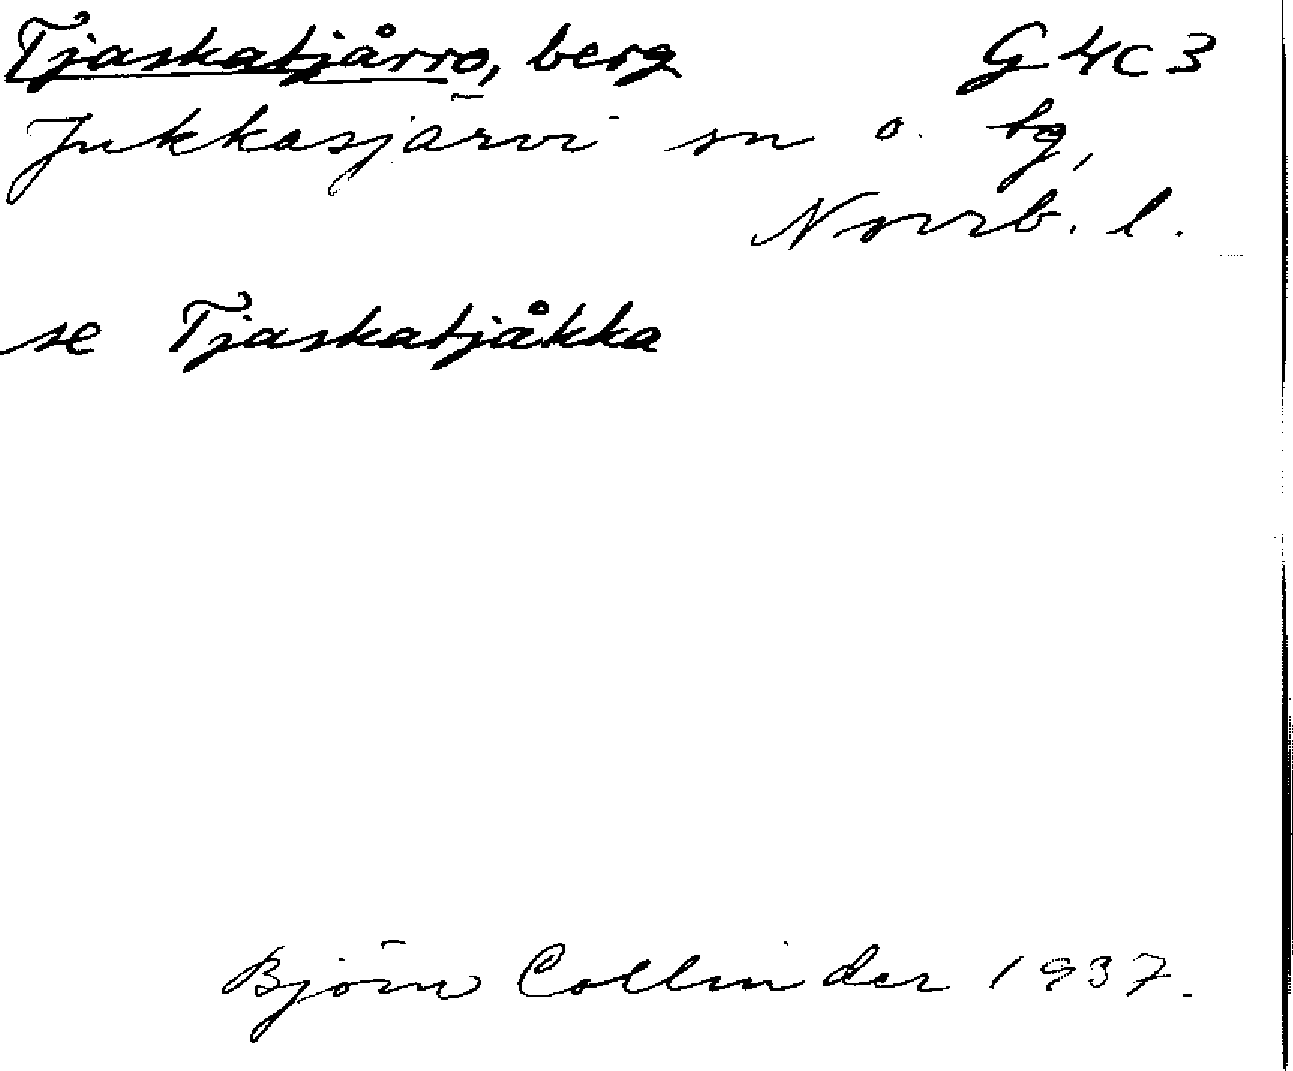 Tjaskatjårro, berg G 4 c 3
Jukkasjärvi sn o. tg,
Norrb. l.
se Tjaskatjåkka
Björn Collinder 1937.